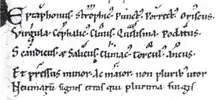 Eptaphonus, Strophicus, Punctus, Porrectus, Oriscus,
Virgula, Cephalicus, Clinis, Quilisma, Podatus,
Scandicus et Salicus, Climacus, Torculus, Ancus,
Et pressus minor ac maior, non pluribus utor
Neumarum signis erras qui plurima fingis